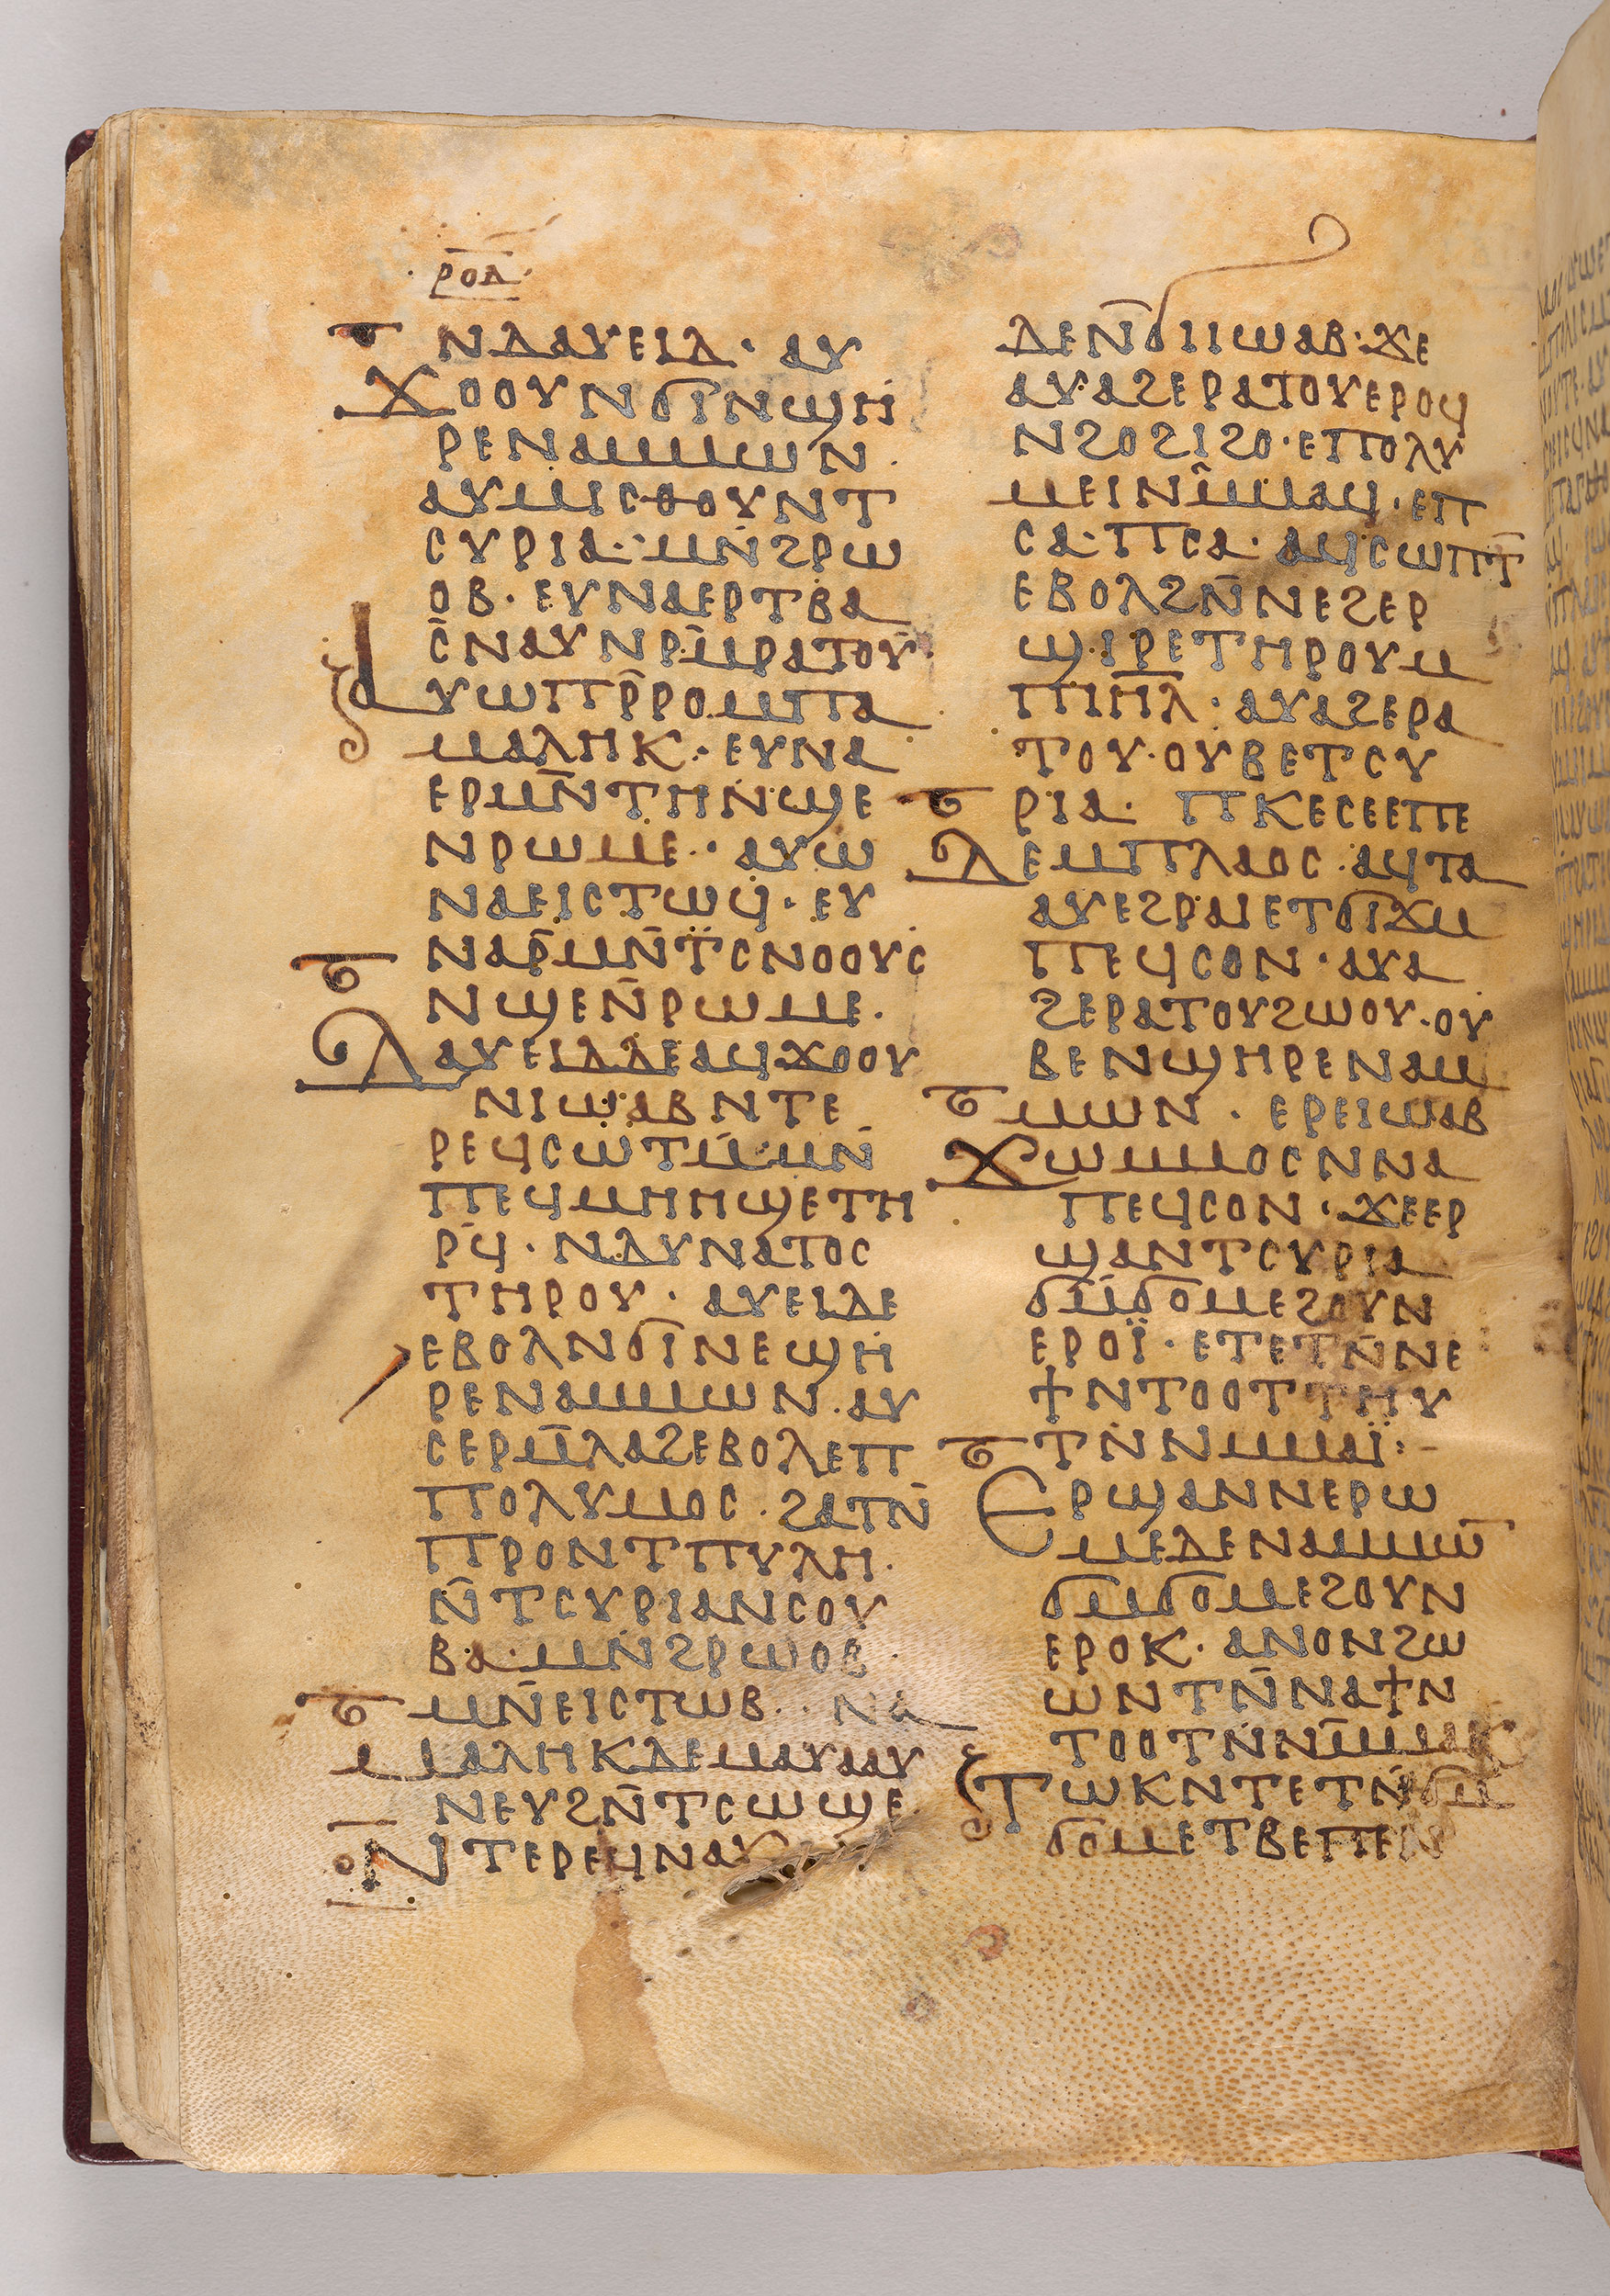 ⲣⲟⲇ
ⲛⲇⲁⲩⲉⲓⲇ· ⲁⲩ
ϫⲟⲟⲩⲛϭⲓⲛϣⲏ
ⲣⲉⲛⲁⲙⲙⲱⲛ·
ⲁⲩⲙⲓⲥⲑⲟⲩⲛⲧ
ⲥⲩⲣⲓⲁ· ⲙⲛ̄ϩⲣⲱ
ⲟⲃ· ⲉⲩⲛⲁⲉⲣⲧⲃⲁ
ⲥ̄ⲛⲁⲩⲛⲣ̄ⲙⲣⲁⲧⲟⲩ·
ⲁⲩⲱⲡⲣ̄ⲣⲟⲙⲡⲁ
ⲙⲁⲗⲏⲕ· ⲉⲩⲛⲁ
ⲉⲣⲙⲛ̄ⲧⲏⲛ̇ϣⲉ
ⲛⲣⲱⲙⲉ· ⲁⲩⲱ
ⲛⲁⲉⲓⲥⲧⲱϥ· ⲉⲩ
ⲛⲁⲣ̄ⲙⲛ̄ⲧⲥⲛⲟⲟⲩⲥ
ⲛϣⲉⲛ̄ⲣⲱⲙⲉ·
ⲇⲁⲩⲉⲓⲇⲇⲉⲁϥϫⲟⲟⲩ
ⲛⲓⲱⲁⲃⲛⲧⲉ
ⲣⲉϥⲥⲱⲧⲙ̄ⲙⲛ̄
ⲡⲉϥⲙⲏⲏϣⲉⲧⲏ
ⲣϥ̄· ⲛⲇⲩⲛⲁⲧⲟⲥ
ⲧⲏⲣⲟⲩ· ⲁⲩⲉⲓⲇⲉ
ⲉⲃⲟⲗⲛϭⲓⲛⲉϣⲏ
ⲣⲉⲛⲁⲙⲙⲱⲛ·ⲁⲩ
ⲥⲉⲣⲙ̄ⲗⲁϩⲉⲃⲟⲗⲉⲡ
ⲡⲟⲗⲩⲙⲟⲥ·ϩⲁⲧⲛ̄
ⲡⲣⲟⲛⲧⲡⲩⲗⲏ·
ⲛ̄ⲧⲥⲩⲣⲓⲁⲛⲥⲟⲩ
ⲃⲁ·ⲙⲛ̄ϩⲣⲱⲟⲃ·
ⲙⲛ̄ⲉⲓⲥⲧⲱⲃ· ⲛⲁ
ⲙⲁⲗⲏⲕⲇⲉⲙⲁⲩⲁⲁⲩ
ⲛⲉⲩϩⲛ̄ⲧⲥⲱϣⲉ
ⲛⲧⲉⲣⲉϥⲛⲁⲩ
ⲇⲉⲛ̄ϭⲓⲓⲱⲁⲃ·ϫⲉ
ⲁⲩⲁϩⲉⲣⲁⲧⲟⲩⲉⲣⲟϥ
ⲛϩⲟϩⲓϩⲟ·ⲉⲡⲟⲗⲩ
ⲙⲉⲓⲛⲙ̄ⲙⲁϥ·ⲉⲡ
ⲥⲁ·ⲡⲥⲁ·ⲁϥⲥⲱⲡⲧ̄
ⲉⲃⲟⲗϩⲛ̄ⲛⲉϩⲉⲣ
ϣⲓⲣⲉⲧⲏⲣⲟⲩⲙ
ⲡⲓⲏ̄ⲗ̄· ⲁⲩⲁϩⲉⲣⲁ
ⲧⲟⲩ·ⲟⲩⲃⲉⲧⲥⲩ
ⲣⲓⲁ· ⲡⲕⲉⲥⲉⲉⲡⲉ
ⲇⲉⲙⲡⲗⲁⲟⲥ·ⲁϥⲧⲁ
ⲁⲩⲉϩⲣⲁⲓⲉⲧϭⲓϫⲙ
ⲡⲉϥⲥⲟⲛ·ⲁⲩⲁ
ϩⲉⲣⲁⲧⲟⲩϩⲱⲟⲩ·ⲟⲩ
ⲃⲉⲛϣⲏⲣⲉⲛⲁⲙ
ⲙⲱⲛ· ⲉⲣⲉⲓⲱⲁⲃ
ϫⲱⲙⲙⲟⲥⲛⲛⲁ
ⲡⲉϥⲥⲟⲛ·ϫⲉⲉⲣ
ϣⲁⲛⲧⲥⲩⲣⲓⲁ
ϭⲙ̄ϭⲟⲙⲉϩⲟⲩⲛ
ⲉⲣⲟⲓ̈·ⲉⲧⲉⲧⲛ̄ⲛⲉ
ϯⲛⲧⲟⲟⲧⲧⲏⲩ
ⲧⲛ̄ⲛⲙⲙⲁⲓ̈:
ⲉⲣϣⲁⲛⲛⲉⲣⲱ
ⲙⲉⲇⲉⲛⲁⲙⲙⲱ̄
ϭⲙϭⲟⲙⲉϩⲟⲩⲛ
ⲉⲣⲟⲕ·ⲁⲛⲟⲛϩⲱ
ⲱⲛⲧⲛ̄ⲛⲁϯⲛ
ⲧⲟⲟⲧⲛ̄ⲛⲙ̄ⲙⲁⲕ
ⲧⲱⲕⲛⲧⲉⲧⲛ̄ϭⲙ
ϭⲟⲙⲉⲧⲃⲉⲡⲉⲛ